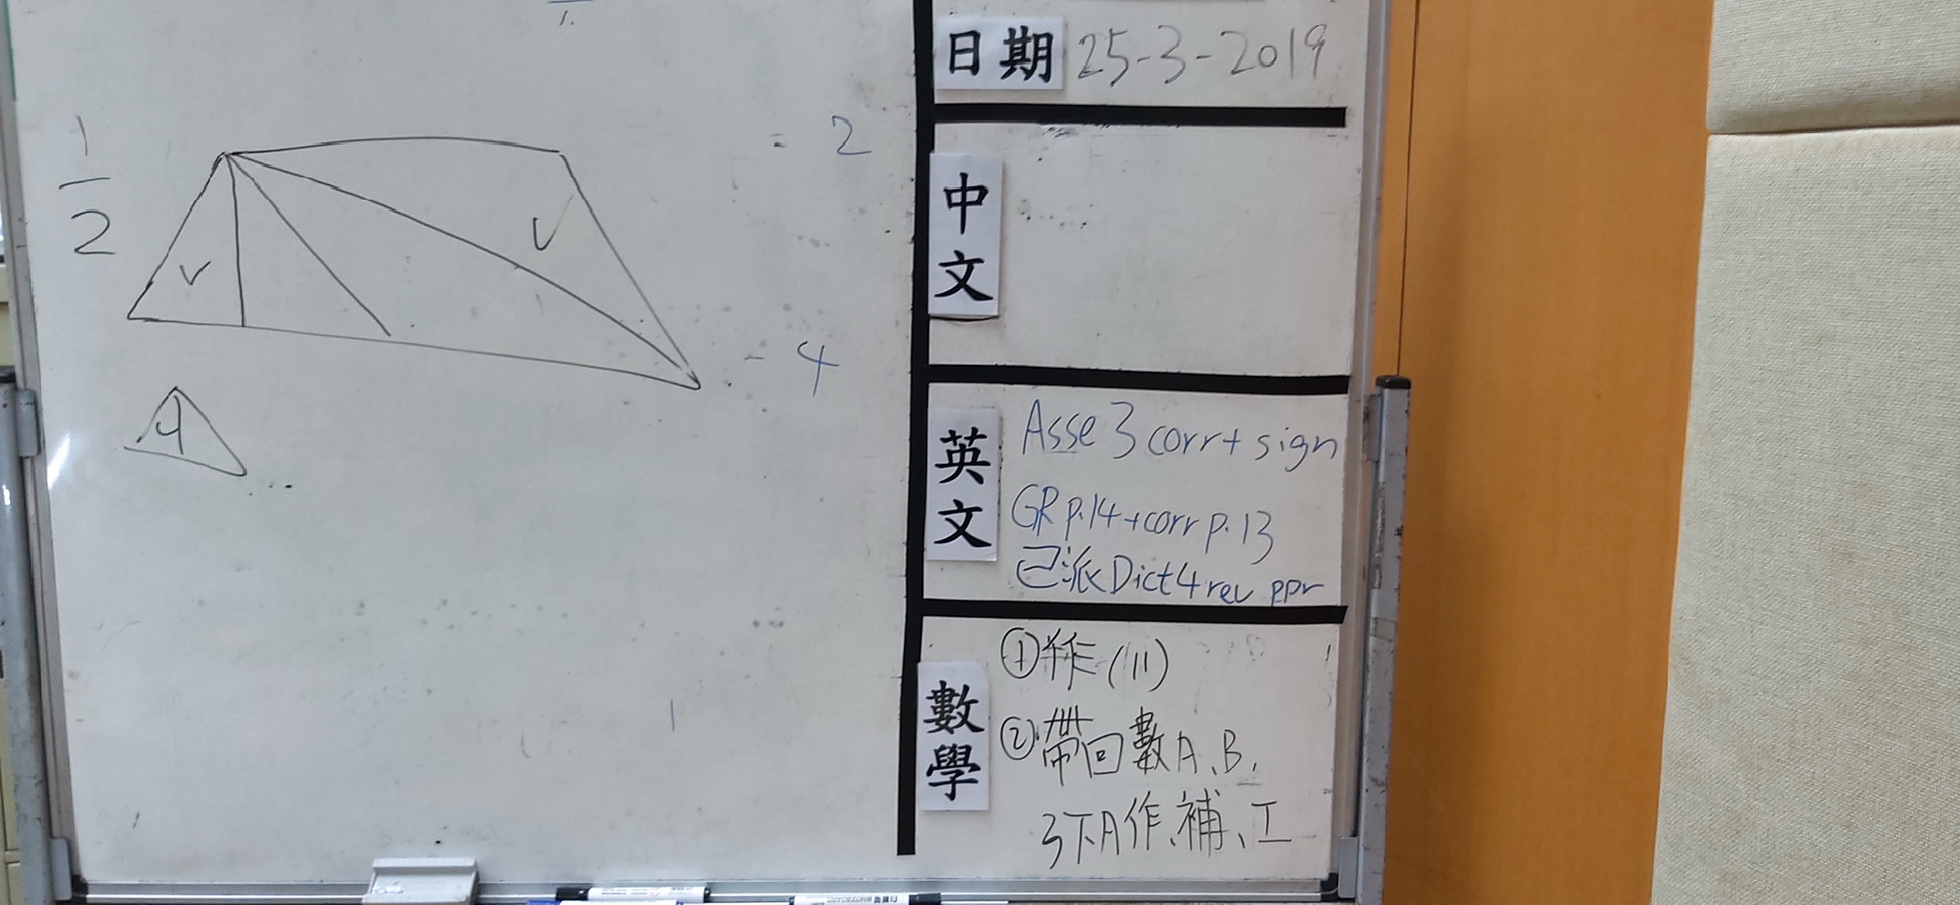 1
2
= 2
- 4
4
日期 25-3-2019
中文
英文
Asse 3 corr + sign
GR p.14 + corr p.13
已派 Dict 4 rev ppr
數學
① 作 (11)
② 帶回數A、B、
3下A作、補、工